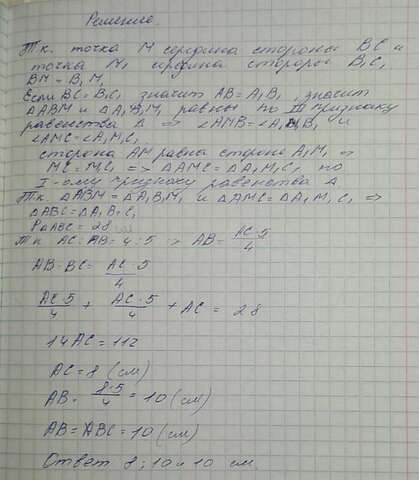 Решение.
Т.к. точка М середина стороны BC и
точка M₁ середина стороны B₁C₁
BM = B₁M₁
Если BC = B₁C₁ значит AB = A₁B₁, значит
△ABM и △A₁B₁M₁ равны по III признаку
равенства △ => ∠AMB = ∠A₁M₁B₁ и
∠AMC = ∠A₁M₁C₁
сторона AM равна стороне A₁M₁ =>
MC = M₁C₁ => △AMC = △A₁M₁C₁ по
I-ому признаку равенства △
Тк △ABM = △A₁B₁M₁ и △AMC = △A₁M₁C₁ =>
△ABC = △A₁B₁C₁
P△ABC = 28
Тк AC:AB = 4:5 => AB = AC·5/4
AB = BC = AC·5/4
AC·5/4 + AC·5/4 + AC = 28
14AC = 112
AC = 8 (см)
AB = 8·5/4 = 10 (см)
AB = BC = 10 (см)
Ответ 8; 10 и 10 см